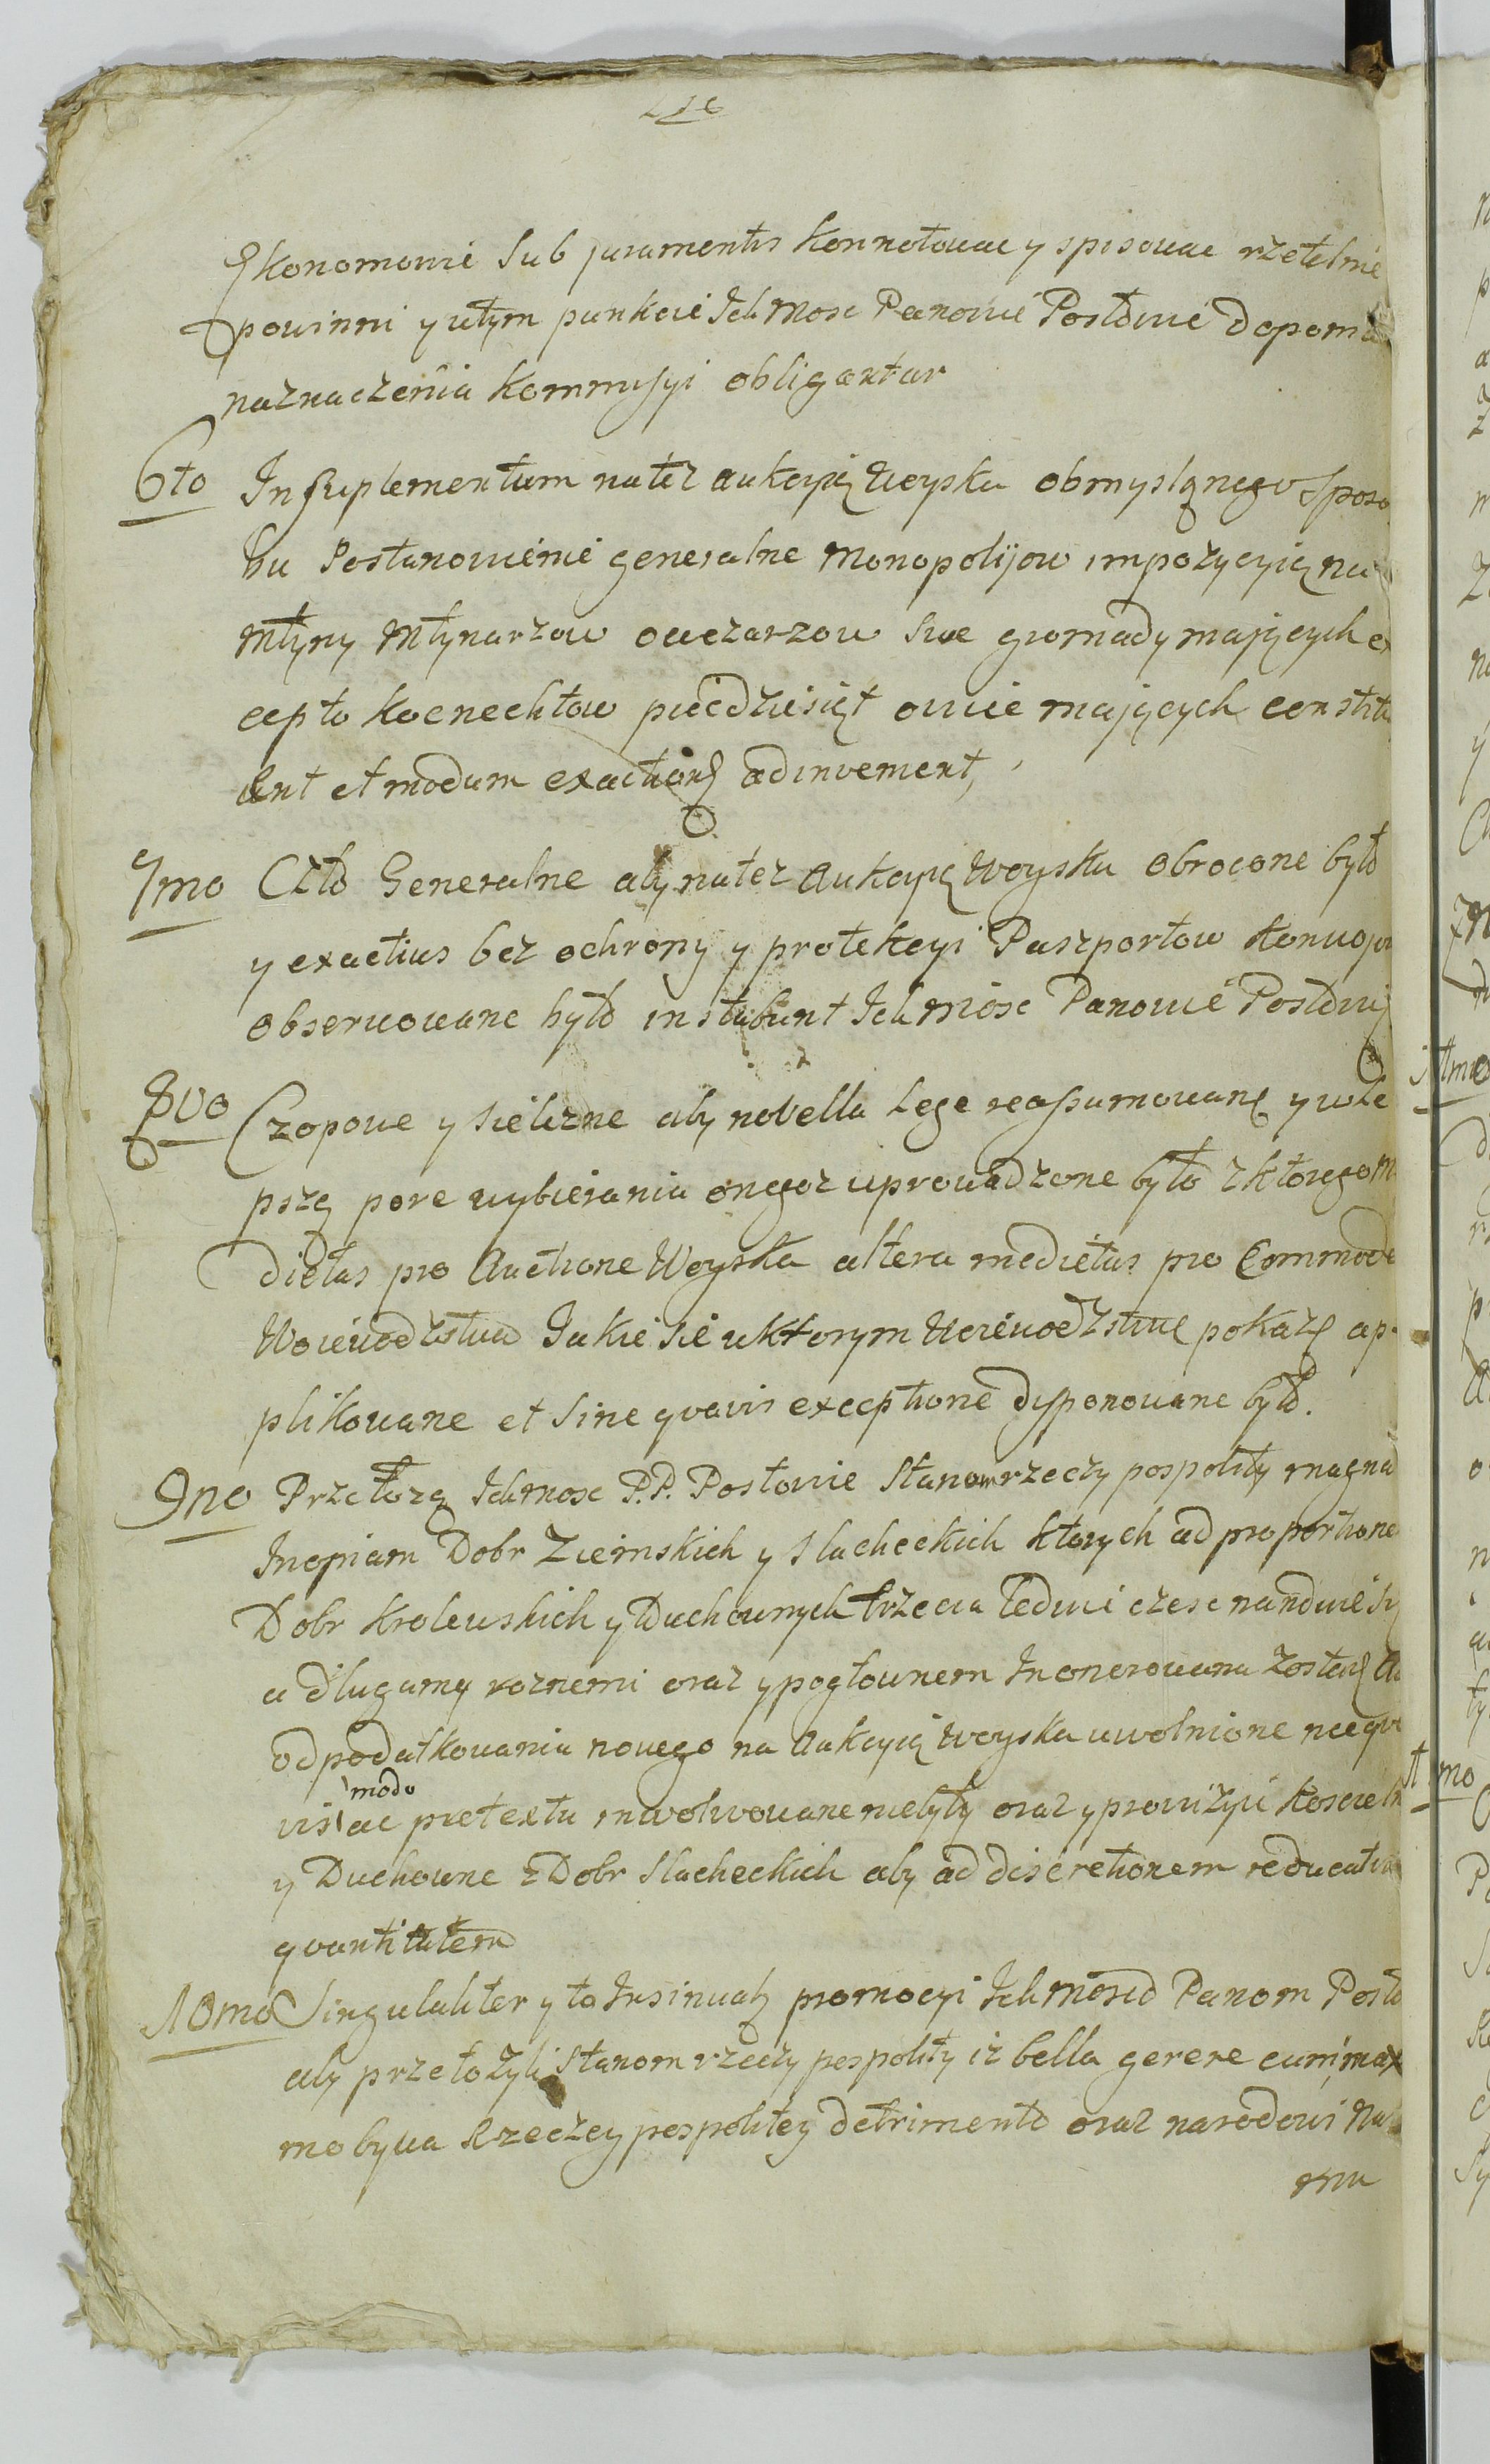 Ekonomowie Sub juramentis konnotowac y spisowac rzetelnie
powinni y wtym punkcie Ich Mosc Panowie Posłowie Dopom
naznaczenia Kommissyi obligantur
6to In suplementum natez aukcyią Woyska obmyslonego Sposo
bu Postanowienie generalne Monopolijow impozycyią na
Młyny Młynarzow owczarzow swe gromady maiących ex
cepto knechtow piecdziesiąt owiec maiących constitu
ent et modum exactionis adinvenient,
7mo Cło Generalne aby natez Aukcyią Woyska obrocone było
y exactius bez ochrony y protekcyi Paszportow konwojo
observowane było instabunt Ich Mosc Panowie Posłowie
8vo Czopowe y Sielezne aby novella Lege reassumowane y w le
pszą pore wybierania onegoz wprowadzone było z ktorego Me
dietas pro Auctione Woyska altera medietas pro Commodo
Woiewodztwa Jakie sie w ktorym Woiewodztwie pokaze ap-
plikowane et Sine qvavis exceptione dysponowane było.
9no Przełozą Ich Mosc P.P. Posłowie Stanom rzeczy pospolity magnam
Inopiam Dobr Ziemskich y Slacheckich ktorych ad proportione
Dobr Krolewskich y Duchownych trzecia ledwie czesc nanduie się
a długamy roznemi oraz y pogłownem Inonerowana zostaie
od podatkowania nowego na Aukcyią Woyska uwolnione neeqva
vis modo ac pretextu inwolwowane niebyły oraz y prowizyie Koscieln
y Duchowne z Dobr Slacheckich aby ad discretionem reducatur
qvantitatem
10mo Singulariter y to Insinuatą promocyi Ich Mosciо Panom Posło
aby przełozyli Stanom rzeczy pospolity iz bella gerere cum max
mo bywa Rzeczey pospolitey detrimento oraz narodowi Na
mu